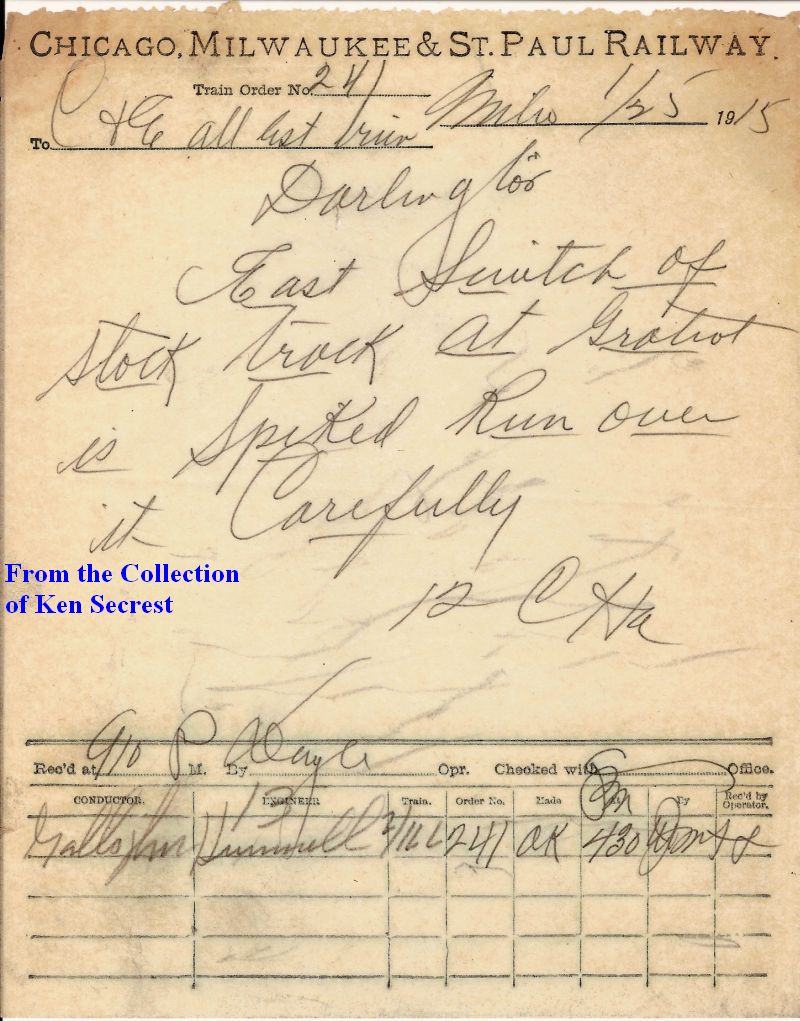 CHICAGO, MILWAUKEE & ST. PAUL RAILWAY.
Train Order No. 241
Milw 1/25 1915
To C & E all Est
Darlington
East Switch of
stock track at Gratiot
is Spiked Run over
it Carefully
12 C
From the Collection
of Ken Secrest
Rec'd at 910 P M. By Opr. Checked with Office.
CONDUCTOR. ENGINEER Train. Order No. Made At By Rec'd by Operator.
241 OK 430